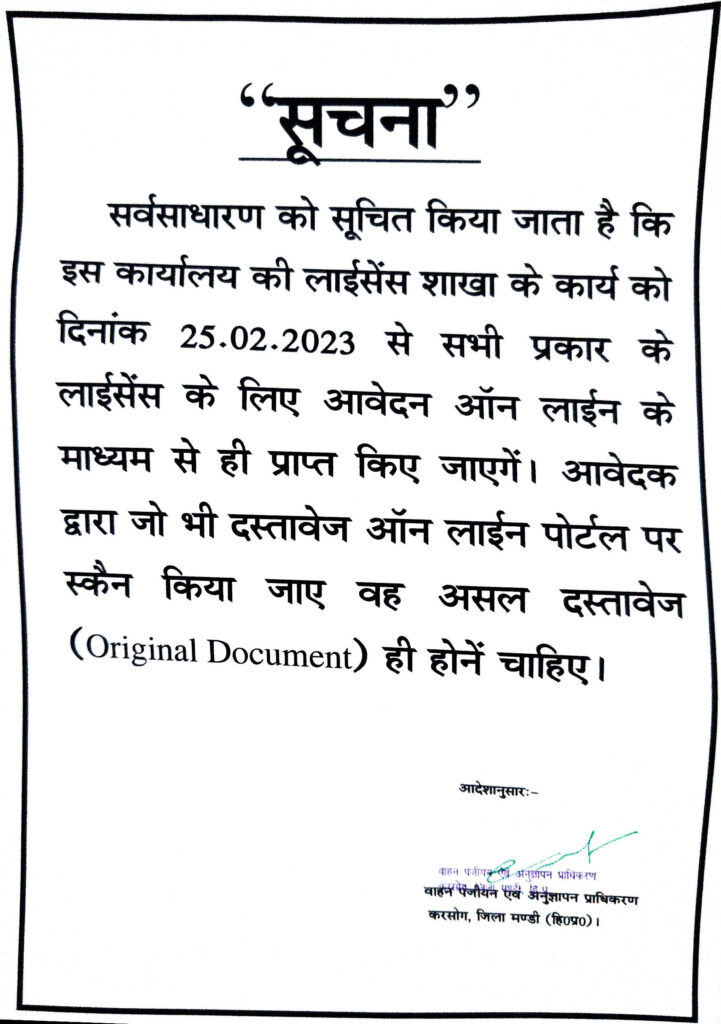 “सूचना”
सर्वसाधारण को सूचित किया जाता है कि
इस कार्यालय की लाईसेंस शाखा के कार्य को
दिनांक 25.02.2023 से सभी प्रकार के
लाईसेंस के लिए आवेदन ऑन लाईन के
माध्यम से ही प्राप्त किए जाएगें। आवेदक
द्वारा जो भी दस्तावेज ऑन लाईन पोर्टल पर
स्कैन किया जाए वह असल दस्तावेज
(Original Document) ही होनें चाहिए।
आदेशानुसारः-
वाहन पंजीयन एवं अनुज्ञापन प्राधिकरण
वाहन पंजीयन एवं अनुज्ञापन प्राधिकरण
करसोग, जिला मण्डी (हि0प्र0)।